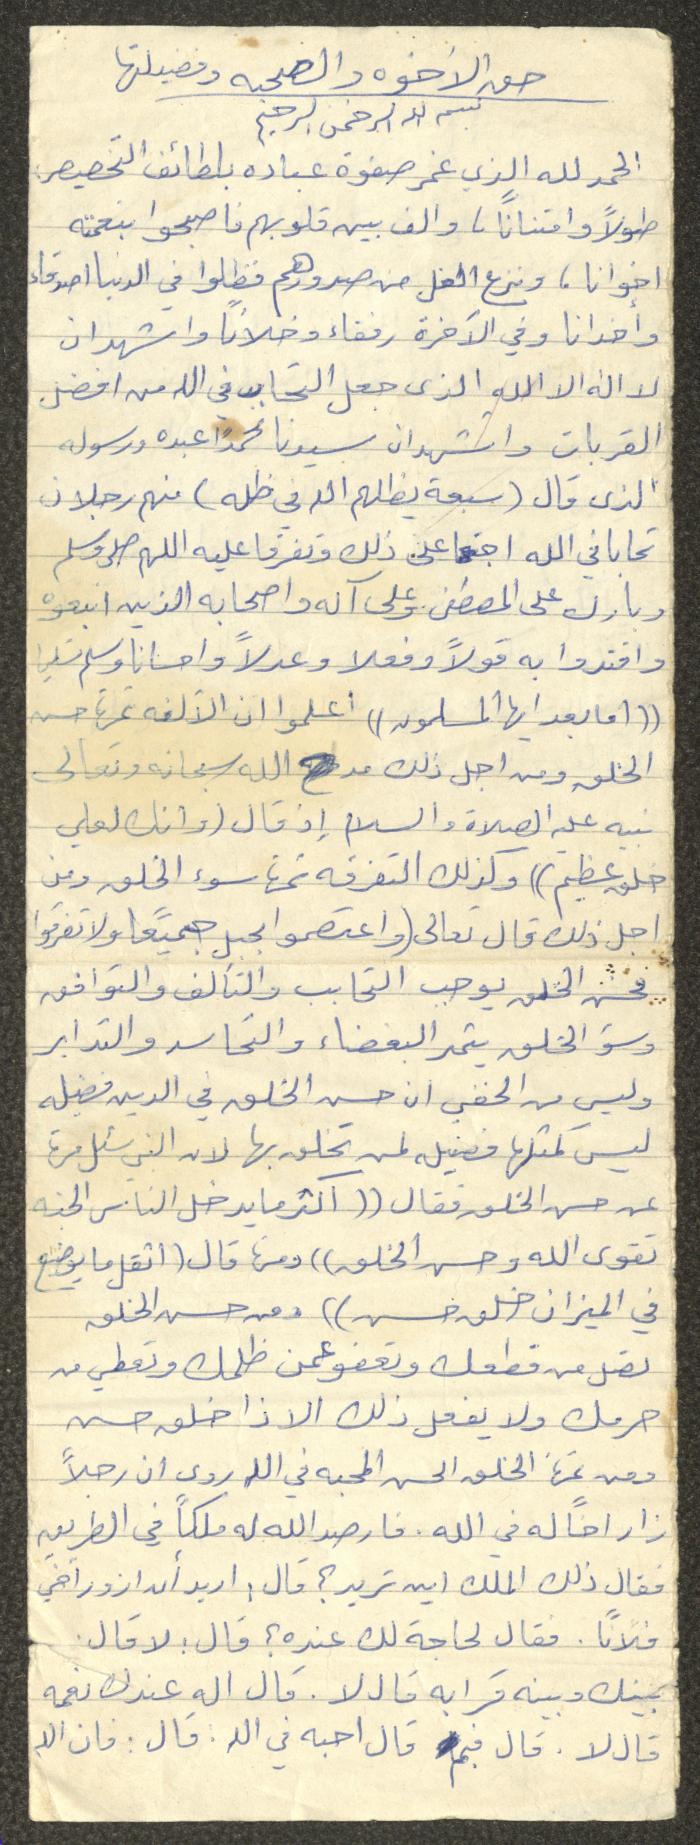 حق الاخوه والصحبه وفضيلتها
بسم الله الرحمن الرحيم
الحمد لله الذي غمر صفوة عباده بلطائف التخصيص
طولاً وامتناناً، والف بين قلوبهم فاصبحوا بنعمته
اخوانا، ونزع الغل من صدورهم فظلوا في الدنيا اصدقاء
وأخدانا وفي الآخرة رفقاء وخلانا واشهد ان
لا اله الا الله الذى جعل التحاب في الله من افضل
القربات واشهد ان سيدنا محمداً عبده ورسوله
الذى قال (سبعة يظلهم الله في ظله) منهم رجلان
تحابا في الله اجتمعا على ذلك وتفرقا عليه اللهم صل وسلم
وبارك على المصطفى وعلى آله واصحابه الذين اتبعوه
واقتدوا به قولاً وفعلا وعدلاً واحسانا وسلم تسليما
((اما بعد ايها المسلمون)) أعلموا ان الألفه ثمرة حسن
الخلق ومن اجل ذلك مدح الله سبحانه وتعالى
نبيه عليه الصلاة والسلام إذ قال (وانك لعلى
خلق عظيم)) وكذلك التفرقه ثمرة سوء الخلق ومن
اجل ذلك قال تعالى (واعتصموا بحبل جميعا ولا تفرقوا
فحسن الخلق يوجب التحابب والتآلف والتوافق
وسؤ الخلق يثمر البغضاء والتحاسد والتدابر
وليس من الخفي ان حسن الخلق في الدين فضيله
ليس كمثلها فضيله لمن تخلق بها لان النبي سئل مرة
عن حسن الخلق فقال ((أكثر ما يدخل الناس الجنه
تقوى الله وحسن الخلق)) ومرة قال (اثقل ما يوضع
في الميزان خلق حسن)) ومن حسن الخلق
تصل من قطعك وتعفو عمن ظلمك وتعطي من
حرمك ولا يفعل ذلك الا ذا خلق حسن
ومن ثمرة الخلق الحسن المحبه في الله روى ان رجلاً
زار اخاً له في الله. فارصد الله له ملكاً في الطريق
فقال ذلك الملك اين تريد؟ قال: اريد أن ازور أخي
فلانا. فقال لحاجة لك عنده؟ قال: لا قال.
بينك وبينه قرابه قال لا. قال اله عندك نعمه
قال لا. قال فبم قال احبه في الله. قال: فان الله